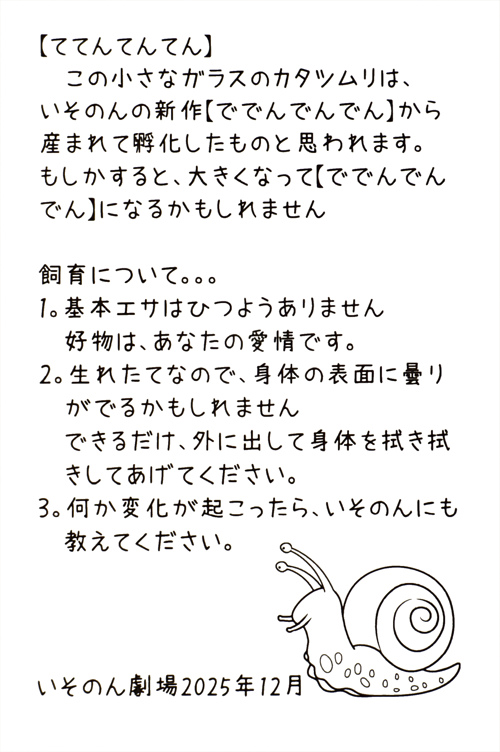 【ててんてんてん】
この小さなガラスのカタツムリは、
いそのんの新作【ででんでんでん】から
産まれて孵化したものと思われます。
もしかすると、大きくなって【ででんでん
でん】になるかもしれません
飼育について。。。
1。基本エサはひつようありません
好物は、あなたの愛情です。
2。生れたてなので、身体の表面に曇り
がでるかもしれません
できるだけ、外に出して身体を拭き拭
きしてあげてください。
3。何か変化が起こったら、いそのんにも
教えてください。
いそのん劇場2025年12月